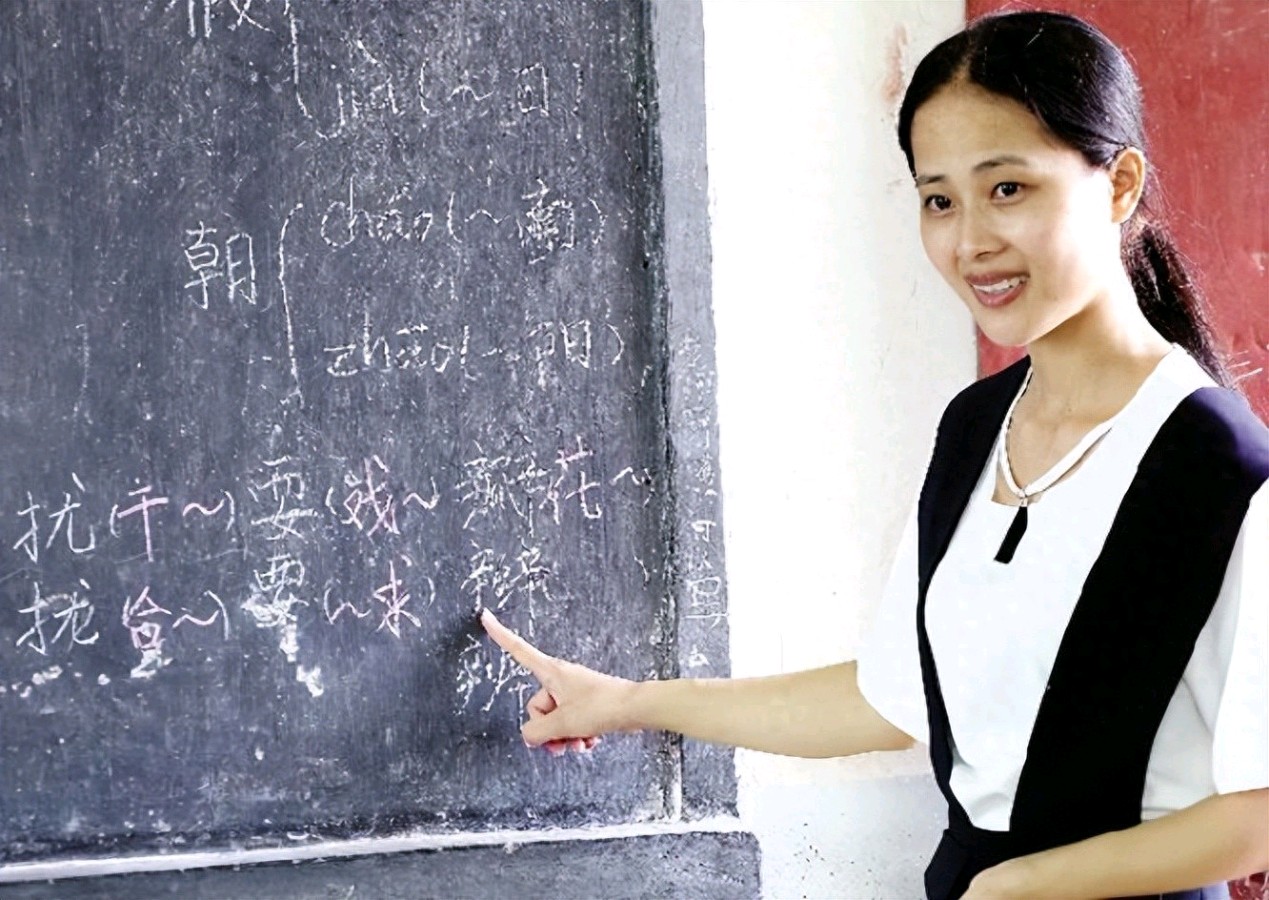 假
jià(~日)
cháo(~南)
朝
zhāo(~阳)
扰(干~) 耍(戏~) 瓣花~
拢 合~) 要(~求)